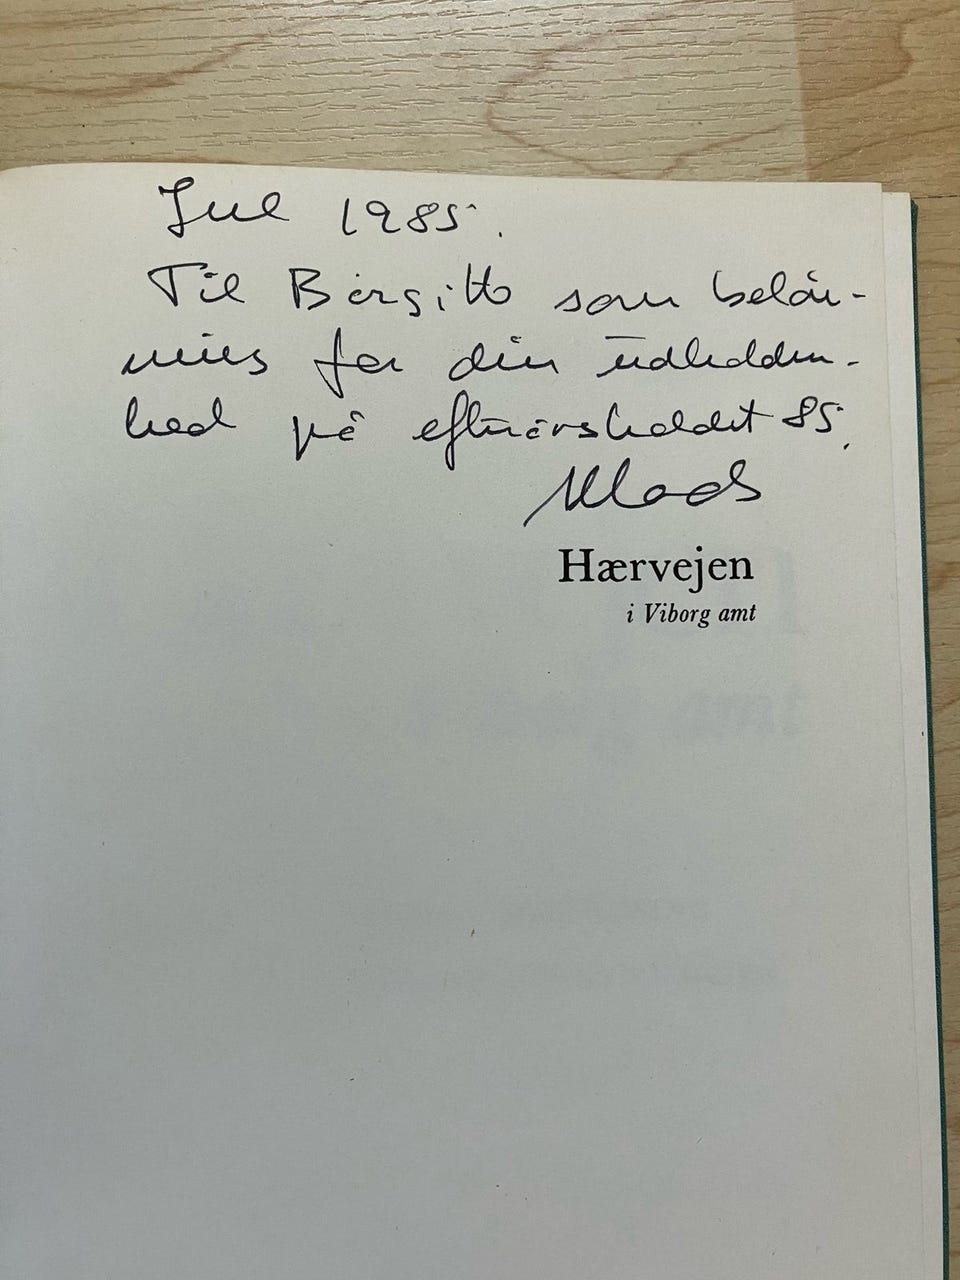 Jul 1985.
Til Birgitte som beløn-
nings for din udholden-
hed på efterårsholdet 85.
Mads
Hærvejen
i Viborg amt